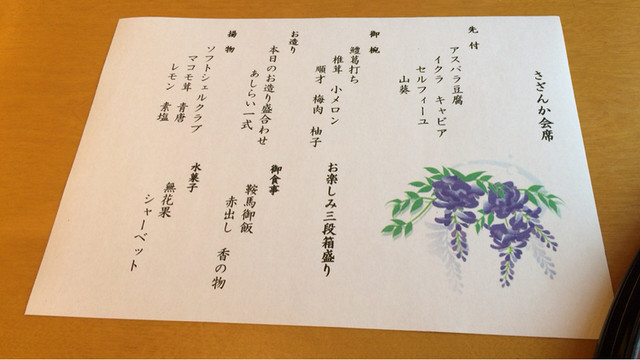 さざんか会席
先付
アスパラ豆腐
イクラ　キャビア
セルフィーユ
山葵
御椀
鱧葛打ち
椎茸　小メロン
順才　梅肉　柚子
お造り
本日のお造り盛合わせ
あしらい一式
揚物
ソフトシェルクラブ
マコモ茸　青唐
レモン　素塩
お楽しみ三段箱盛り
御食事
鞍馬御飯
赤出し　香の物
水菓子
無花果
シャーベット